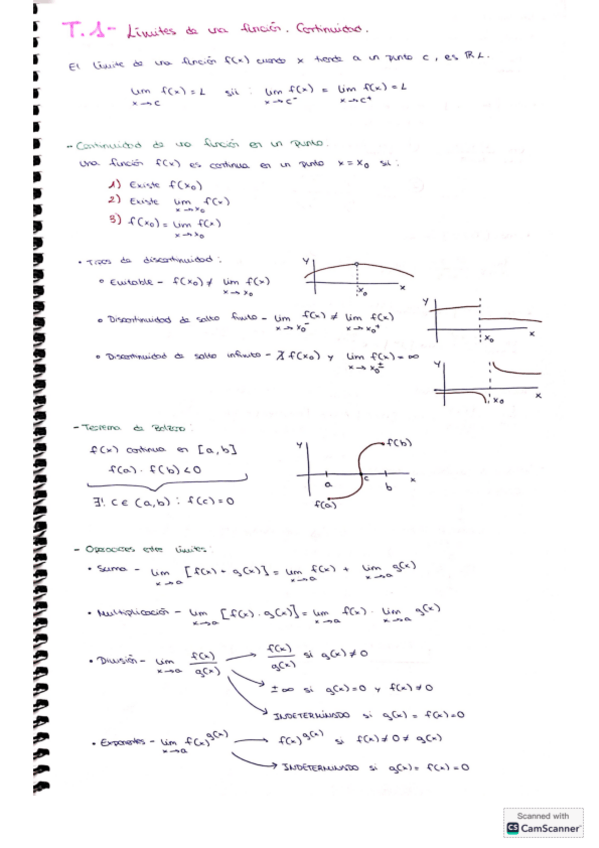 T.1- Límites de una función. Continuidad.
El límite de una función f(x) cuando x tiende a un punto c, es R L.
lim f(x) = L sii : lim f(x) = lim f(x) = L
x→c x→c⁻ x→c⁺
- Continuidad de una función en un punto.
Una función f(x) es continua en un punto x = x₀ si :
1) Existe f(x₀)
2) Existe lim f(x)
x→x₀
3) f(x₀) = lim f(x)
x→x₀
• Tipos de discontinuidad :
° Evitable - f(x₀) ≠ lim f(x)
x→x₀
y x₀ x
° Discontinuidad de salto finito - lim f(x) ≠ lim f(x)
x→x₀⁻ x→x₀⁺
y x₀ x
° Discontinuidad de salto infinito - ∄ f(x₀) y lim f(x) = ∞
x→x₀±
y x₀ x
- Teorema de Bolzano :
f(x) continua en [a,b]
f(a) · f(b) < 0
∃! c ∈ (a,b) : f(c) = 0
y f(b)
a c b x
f(a)
- Operaciones entre límites :
• Suma - lim [f(x) + g(x)] = lim f(x) + lim g(x)
x→a x→a x→a
• Multiplicación - lim [f(x) · g(x)] = lim f(x) · lim g(x)
x→a x→a x→a
• División - lim f(x)/g(x) → f(x)/g(x) si g(x) ≠ 0
x→a
→ ±∞ si g(x) = 0 y f(x) ≠ 0
→ INDETERMINADO si g(x) = f(x) = 0
• Exponentes - lim f(x)^g(x) → f(x)^g(x) si f(x) ≠ 0 ≠ g(x)
x→a
→ INDETERMINADO si g(x) = f(x) = 0
Scanned with
CS CamScanner